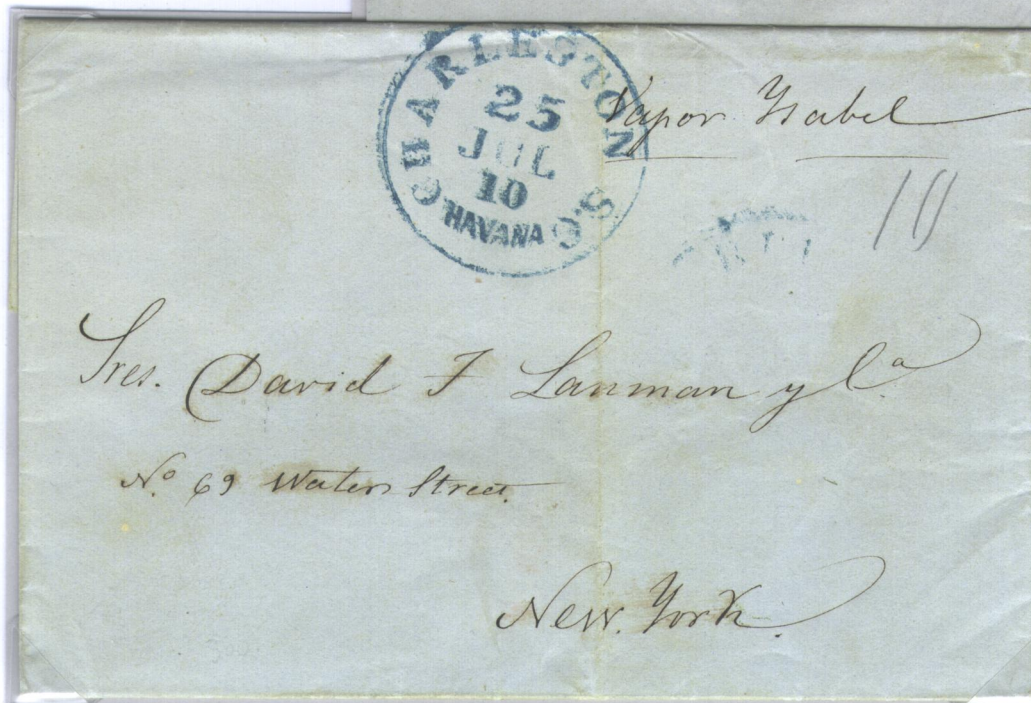 CHARLESTON S.C.
25
JUL
10
HAVANA
Vapor Ysabel
10
Sres. David F Lanman y Ca.
No. 69 Water Street.
New. York.